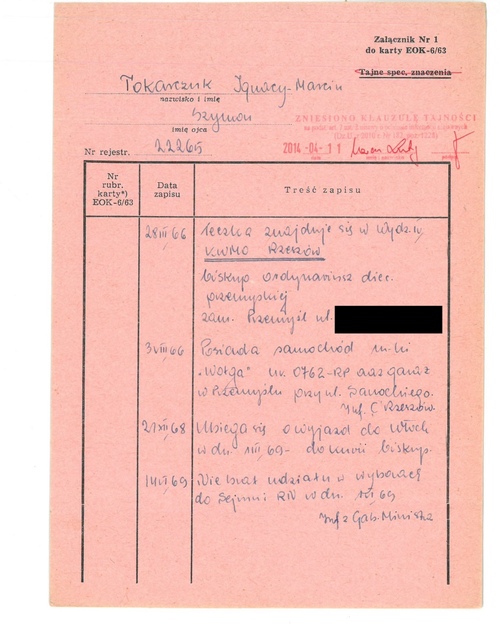 Załącznik Nr 1
do karty EOK-6/63
Tajne spec. znaczenia
Tokarczuk Ignacy-Marcin
nazwisko i imię
Szymon
imię ojca
ZNIESIONO KLAUZULĘ TAJNOŚCI
Nr rejestr. 22265
2014-04-11
data
podpis
Nr rubr. karty*) EOK-6/63
Data zapisu
Treść zapisu
28 III 66 Teczka znajduje się w Wydz. IV
KWMO Rzeszów
biskup ordynariusz diec.
przemyskiej
zam. Przemyśl ul.
3 VIII 66 Posiada samochód m-ki
„Wołga" nr. 0762-RP oraz garaż
w Przemyślu przy ul. Sanockiego.
Inf. C Rzeszów
21 XII 68 Ubiega się o wyjazd do Włoch
w dn. 69- do biskup.
14 VI 69 Nie brał udziału w wyborach
do Sejmu i RN w dn. 1 VI 69
Inf z Gab. Ministra